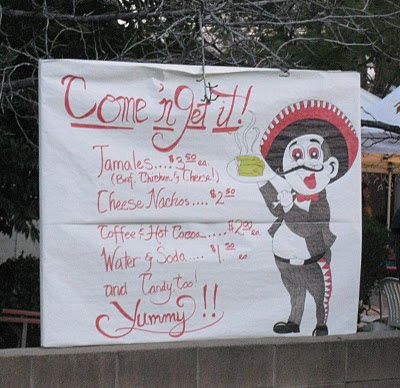 Come 'n get it!
Tamales....$3.50 ea.
(Beef, Chicken & Cheese!)
Cheese Nachos....$2.50
Coffee & Hot Cocoa....$2.00 ea.
Water & Soda....$1.00 ea.
and Candy too!
Yummy!!